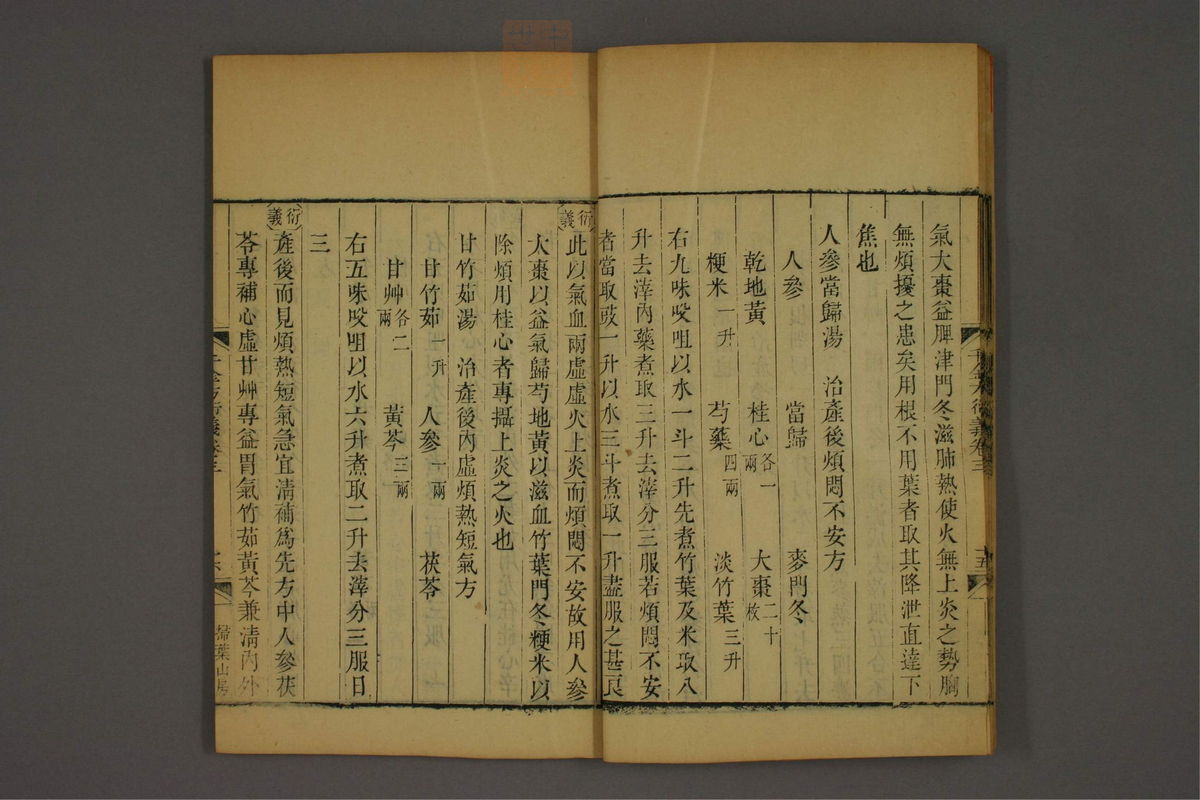 氣大棗益脾津門冬滋肺熱使火無上炎之勢胸
無煩擾之患矣用根不用葉者取其降泄直達下
焦也
人參當歸湯　治產後煩悶不安方
人參　當歸　麥門冬
乾地黃　桂心各一兩　大棗二十枚
粳米一升　芍藥四兩　淡竹葉三升
右九味㕮咀以水一斗二升先煮竹葉及米取八
升去滓內藥煮取三升去滓分三服若煩悶不安
者當取豉一升以水三斗煮取一升盡服之甚良
衍義
此以氣血兩虛虛火上炎而煩悶不安故用人參
大棗以益氣歸芍地黃以滋血竹葉門冬粳米以
除煩用桂心者專攝上炎之火也
甘竹茹湯　治產後內虛煩熱短氣方
甘竹茹一升　人參一兩　茯苓
甘艸各二兩　黃芩三兩
右五味㕮咀以水六升煮取二升去滓分三服日
三
衍義
產後而見煩熱短氣急宜清補爲先方中人參茯
苓專補心虛甘艸專益胃氣竹茹黃芩兼清內外
掃葉山房